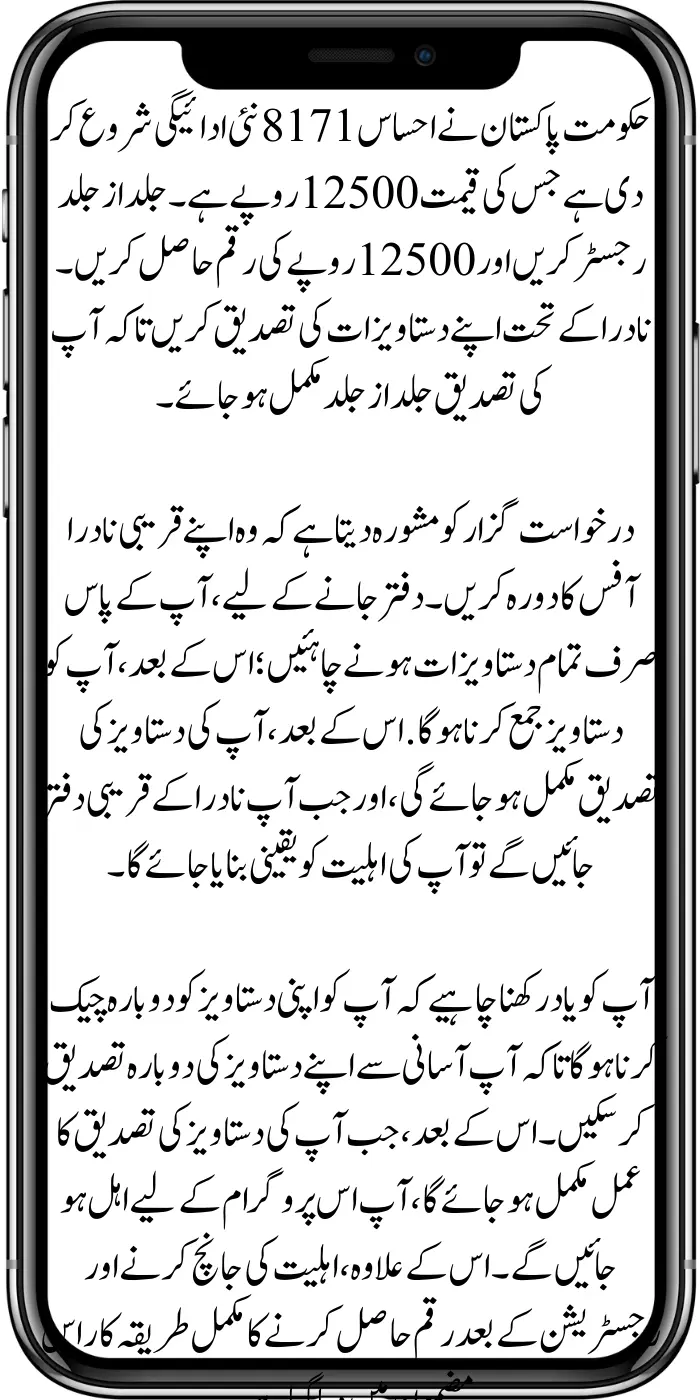 حکومت پاکستان نے احساس 8171 نئی ادائیگی شروع کر
دی ہے جس کی قیمت 12500 روپے ہے۔ جلد از جلد
رجسٹر کریں اور 12500 روپے کی رقم حاصل کریں۔
نادرا کے تحت اپنے دستاویزات کی تصدیق کریں تاکہ آپ
کی تصدیق جلد از جلد مکمل ہو جائے۔
درخواست گزار کو مشورہ دیتا ہے کہ وہ اپنے قریبی نادرا
آفس کا دورہ کریں۔ دفتر جانے کے لیے، آپ کے پاس
صرف تمام دستاویزات ہونے چاہئیں؛ اس کے بعد، آپ کو
دستاویز جمع کرنا ہو گا. اس کے بعد، آپ کی دستاویز کی
تصدیق مکمل ہو جائے گی، اور جب آپ نادرا کے قریبی دفتر
جائیں گے تو آپ کی اہلیت کو یقینی بنایا جائے گا۔
آپ کو یاد رکھنا چاہیے کہ آپ کو اپنی دستاویز کو دوبارہ چیک
کرنا ہو گا تاکہ آپ آسانی سے اپنے دستاویز کی دوبارہ تصدیق
کر سکیں۔ اس کے بعد، جب آپ کی دستاویز کی تصدیق کا
عمل مکمل ہو جائے گا، آپ اس پروگرام کے لیے اہل ہو
جائیں گے۔ اس کے علاوہ، اہلیت کی جانچ کرنے اور
رجسٹریشن کے بعد رقم حاصل کرنے کا مکمل طریقہ کار اس